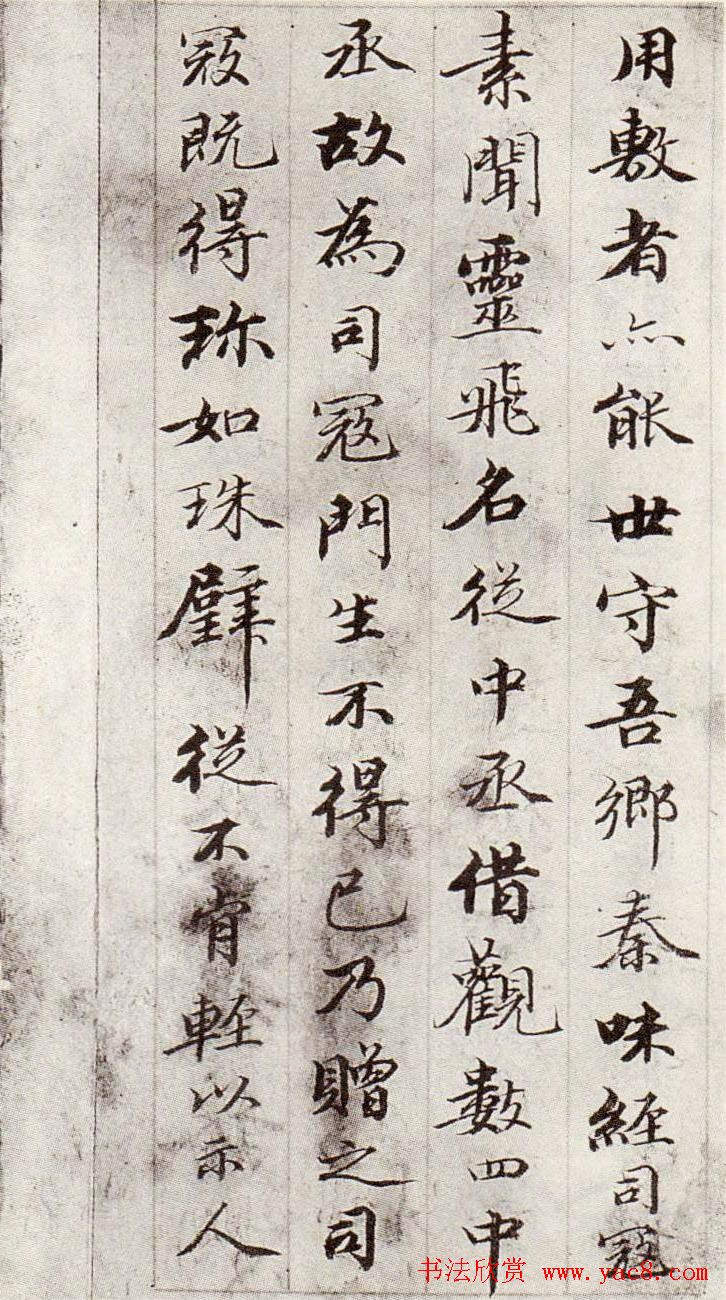 用敷者亦能世守吾鄉秦味經司寇
素聞靈飛名從中丞借觀數四中
丞故為司寇門生不得已乃贈之司
寇既得珎如珠璧從不肯輕以示人
书法欣赏 www.yac8.com